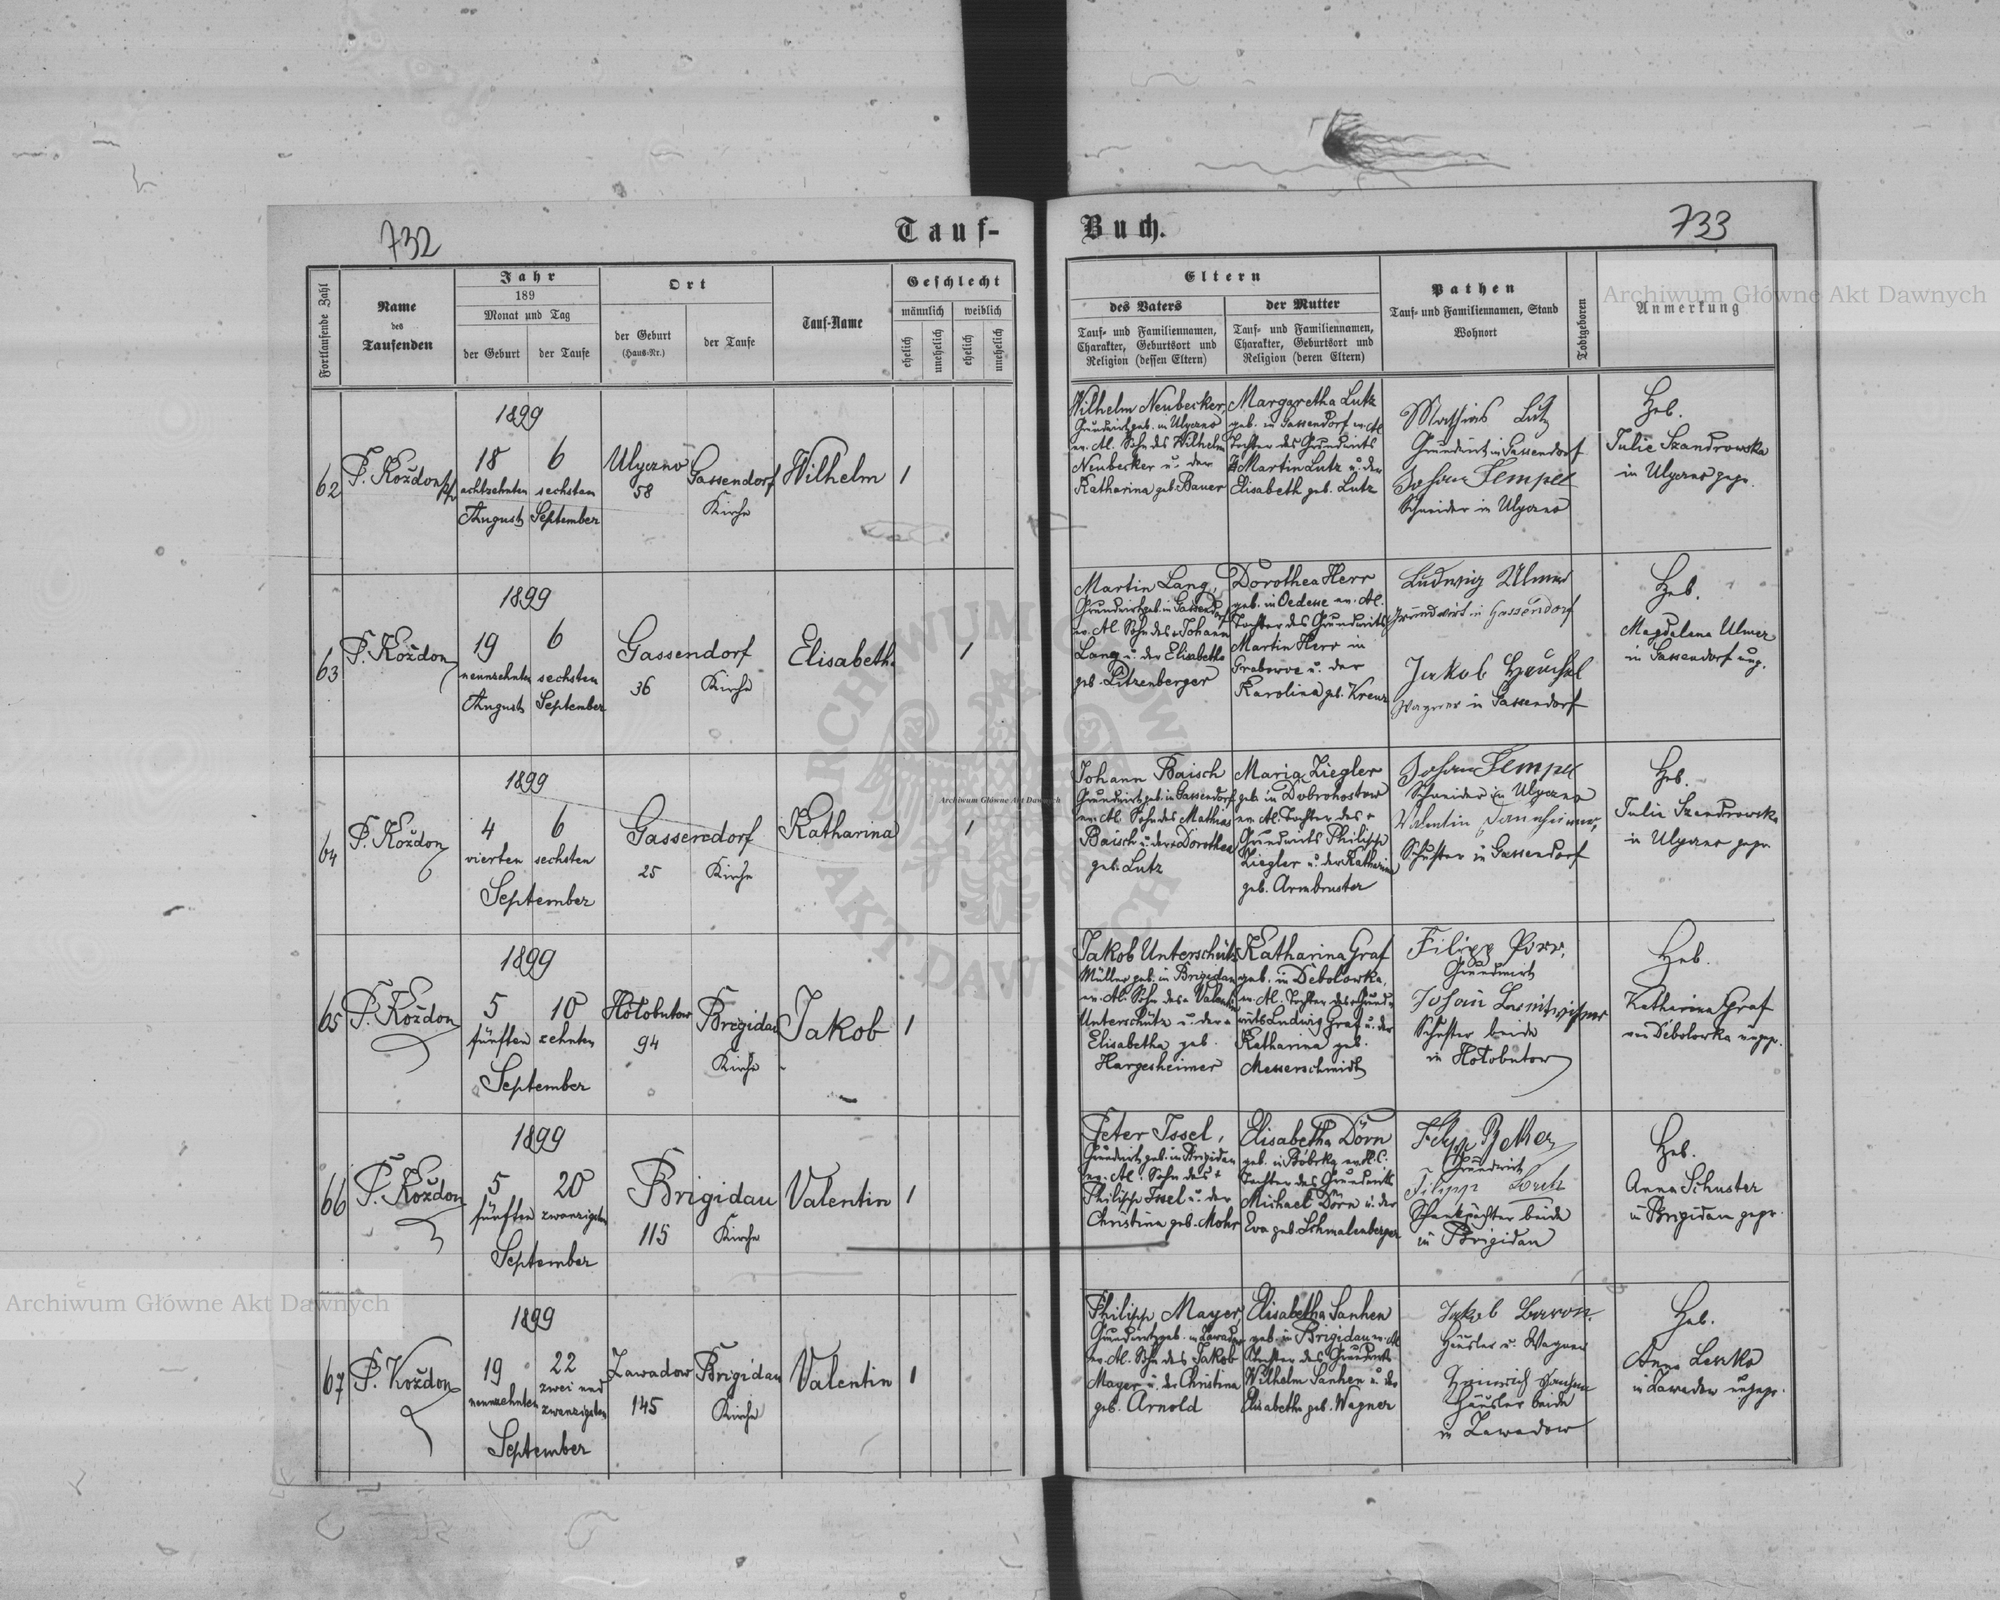 732
Tauf-
Fortlaufende Zahl
Name
des
Taufenden
Jahr
189
Monat und Tag
der Geburt
der Taufe
Ort
der Geburt
(Haus-Nr.)
der Taufe
Tauf-Name
Geschlecht
männlich
weiblich
ehelich
unehelich
ehelich
unehelich
1899
62 P. Koždon 18 6 Ulyczno Gassendorf Wilhelm 1
achtzehnten sechsten 58 Kirche
August September
1899
63 P. Koždon 19 6 Gassendorf Elisabeth 1
neunzehnten sechsten 36 Kirche
August September
1899
64 P. Koždon 4 6 Gassendorf Katharina 1
vierten sechsten 25 Kirche
September
1899
65 P. Koždon 5 10 Hołobutow Brigidau Jakob 1
fünften zehnten 94 Kirche
September
1899
66 P. Koždon 5 20 Brigidau Valentin 1
fünften zwanzigsten 115 Kirche
September
1899
67 P. Koždon 19 22 Zawadow Brigidau Valentin 1
neunzehnten zwei und zwanzigsten 145 Kirche
September
Buch.
733
Eltern
des Vaters
Tauf- und Familiennamen,
Charakter, Geburtsort und
Religion (dessen Eltern)
der Mutter
Tauf- und Familiennamen,
Charakter, Geburtsort und
Religion (deren Eltern)
Pathen
Tauf- und Familiennamen, Stand
Wohnort
Todtgeboren
Anmerkung
Wilhelm Neubecker,
Grundwirt geb. in Ulyczno
ev. Al. Sohn des Wilhelm
Neubecker u. der
Katharina geb. Bauer
Margaretha Lutz
geb. in Gassendorf ev. Al.
Tochter des Grundwirts
Martin Lutz u. der
Elisabeth geb. Lutz
Mathias Lutz
Grundwirt in Gassendorf
Johann Tempel
Schneider in Ulyczno
Heb.
Julie Szandrowska
in Ulyczno gepr.
Martin Lang,
Grundwirt geb. in Gassendorf
ev. Al. Sohn des + Johann
Lang u. der Elisabetha
geb. Litzenberger
Dorothea Herr
geb. in Oedesse ev. Al.
Tochter des Grundwirts
Martin Herr in
Grabowe u. der
Karolina geb. Kreuz
Ludwig Ulmer
Grundwirt in Gassendorf
Jakob Heuchel
Wagner in Gassendorf
Heb.
Magdalena Ulmer
in Gassendorf ung.
Johann Baisch
Grundwirt geb. in Gassendorf
ev. Al. Sohn des Mathias
Baisch u. der + Dorothea
geb. Lutz
Maria Ziegler
geb. in Dobrohostow
ev. Al. Tochter des +
Grundwirts Philipp
Ziegler u. der Katharina
geb. Armbruster
Johann Tempel
Schneider in Ulyczno
Valentin Dannheimer,
Schuster in Gassendorf
Heb.
Julie Szandrowska
in Ulyczno gepr.
Jakob Unterschütz
Müller geb. in Brigidau
ev. Al. Sohn des + Valentin
Unterschütz u. der +
Elisabetha geb.
Hargesheimer
Katharina Graf
geb. in Debolowka,
ev. Al. Tochter des + Grund-
wirts Ludwig Graf u. der
Katharina geb.
Messerschmidt
Filipp Porr,
Grundwirt
Johann
Schuster beide
in Hołobutow
Heb.
Katharina Graf
von Debolowka ungepr.
Peter Issel,
Grundwirt geb. in Brigidau
ev. Al. Sohn des +
Philipp Issel u. der
Christina geb. Mohr
Elisabetha Dörn
geb. in Bóbrka ev. H. C.
Tochter des Grundwirts
Michael Dörn u. der
Eva geb. Schmalenberger
Grundwirt
Filipp
Schankpächter beide
in Brigidau
Heb.
Anna Schuster
in Brigidau gepr.
Philipp Mayer,
Grundwirt geb. in Zawadow
ev. Al. Sohn des Jakob
Mayer u. der Christina
geb. Arnold
Elisabetha Sanhen
geb. in Brigidau ev. Al.
Tochter des Grundwirts
Wilhelm Sanhen u. der
Elisabetha geb. Wagner
Jakob Baron
Häusler u. Wagner
Heinrich
Häusler beide
in Zawadow
Heb.
Anna Lenko
in Zawadow ungepr.
Archiwum Główne Akt Dawnych
Archiwum Główne Akt Dawnych
Archiwum Główne Akt Dawnych
ARCHIWUM GŁÓWNE
AKT DAWNYCH